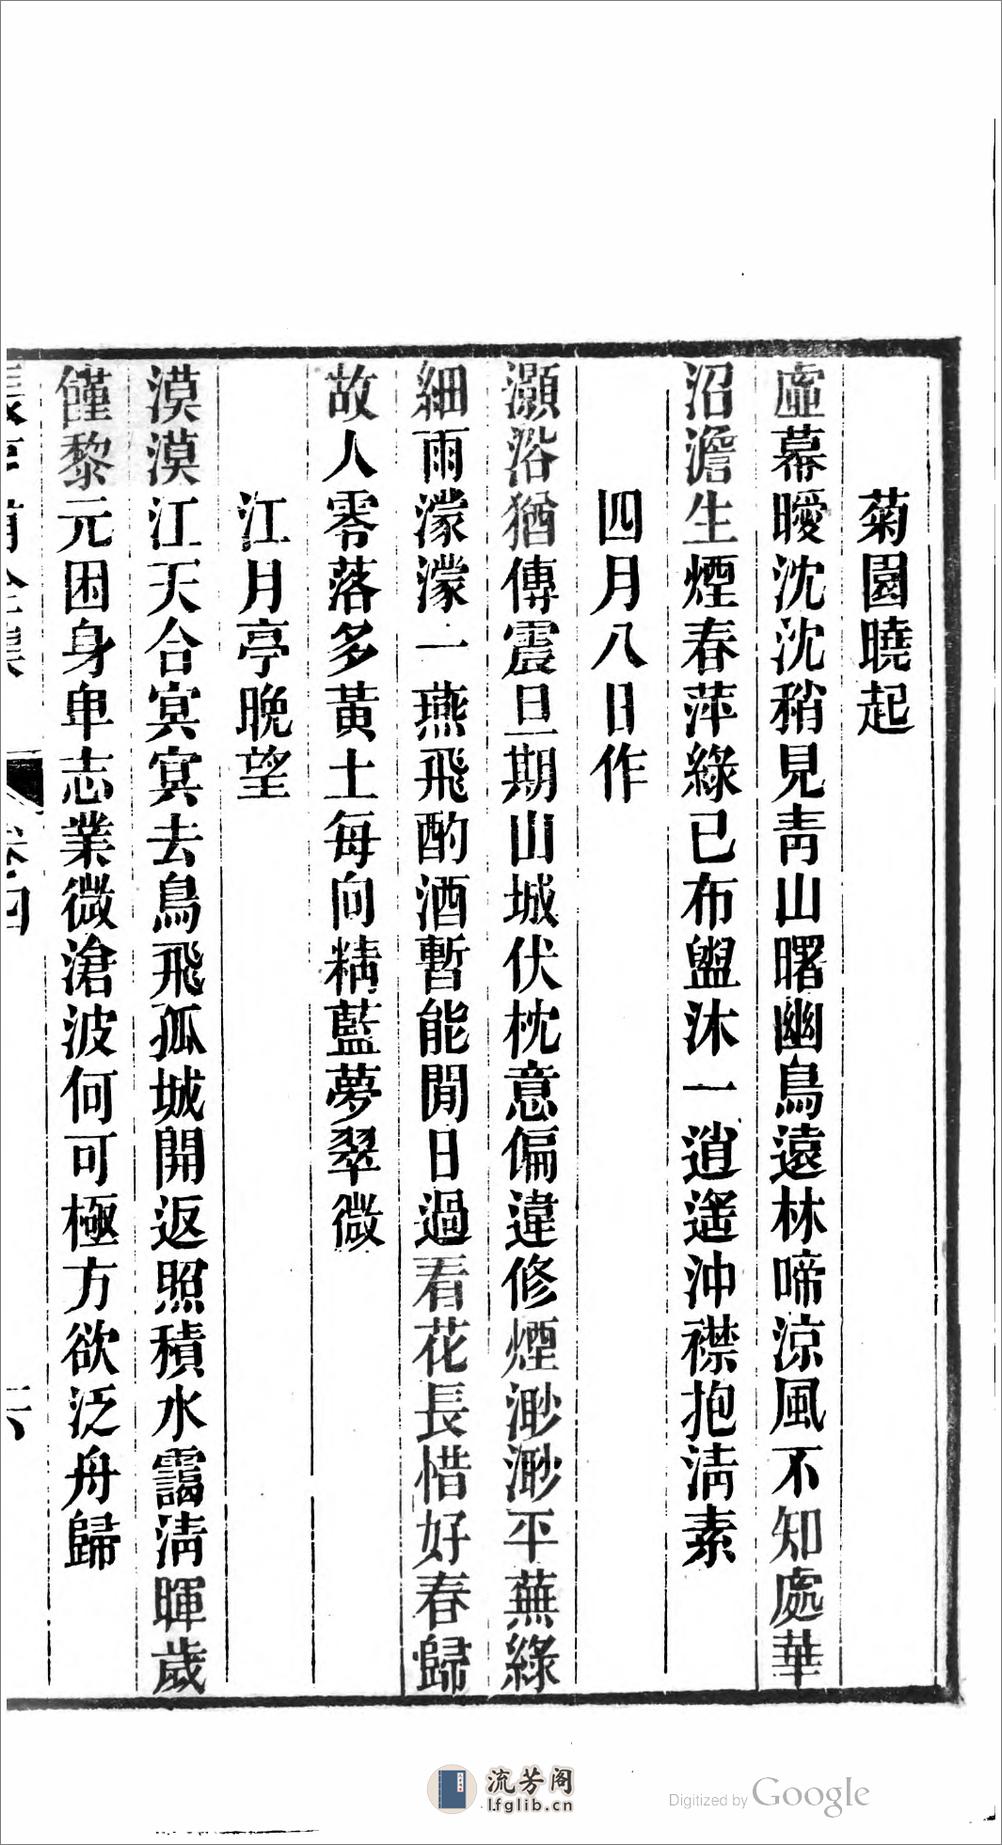 菊園曉起
虛幕曖沈沈稍見靑山曙幽鳥遠林啼涼風不知處華
沼澹生煙春萍綠已布盥沐一逍遙沖襟抱淸素
四月八日作
灝浴猶傳震旦期山城伏枕意偏違修煙渺渺平蕪綠
細雨濛濛一燕飛酌酒暫能閒日過看花長惜好春歸
故人零落多黃土每向精藍夢翠微
江月亭晚望
漠漠江天合㝠㝠去鳥飛孤城開返照積水靄淸暉歲
饉黎元困身卑志業微滄波何可極方欲泛舟歸
卷四
六
流芳阁
lfglib.cn
Digitized by Google